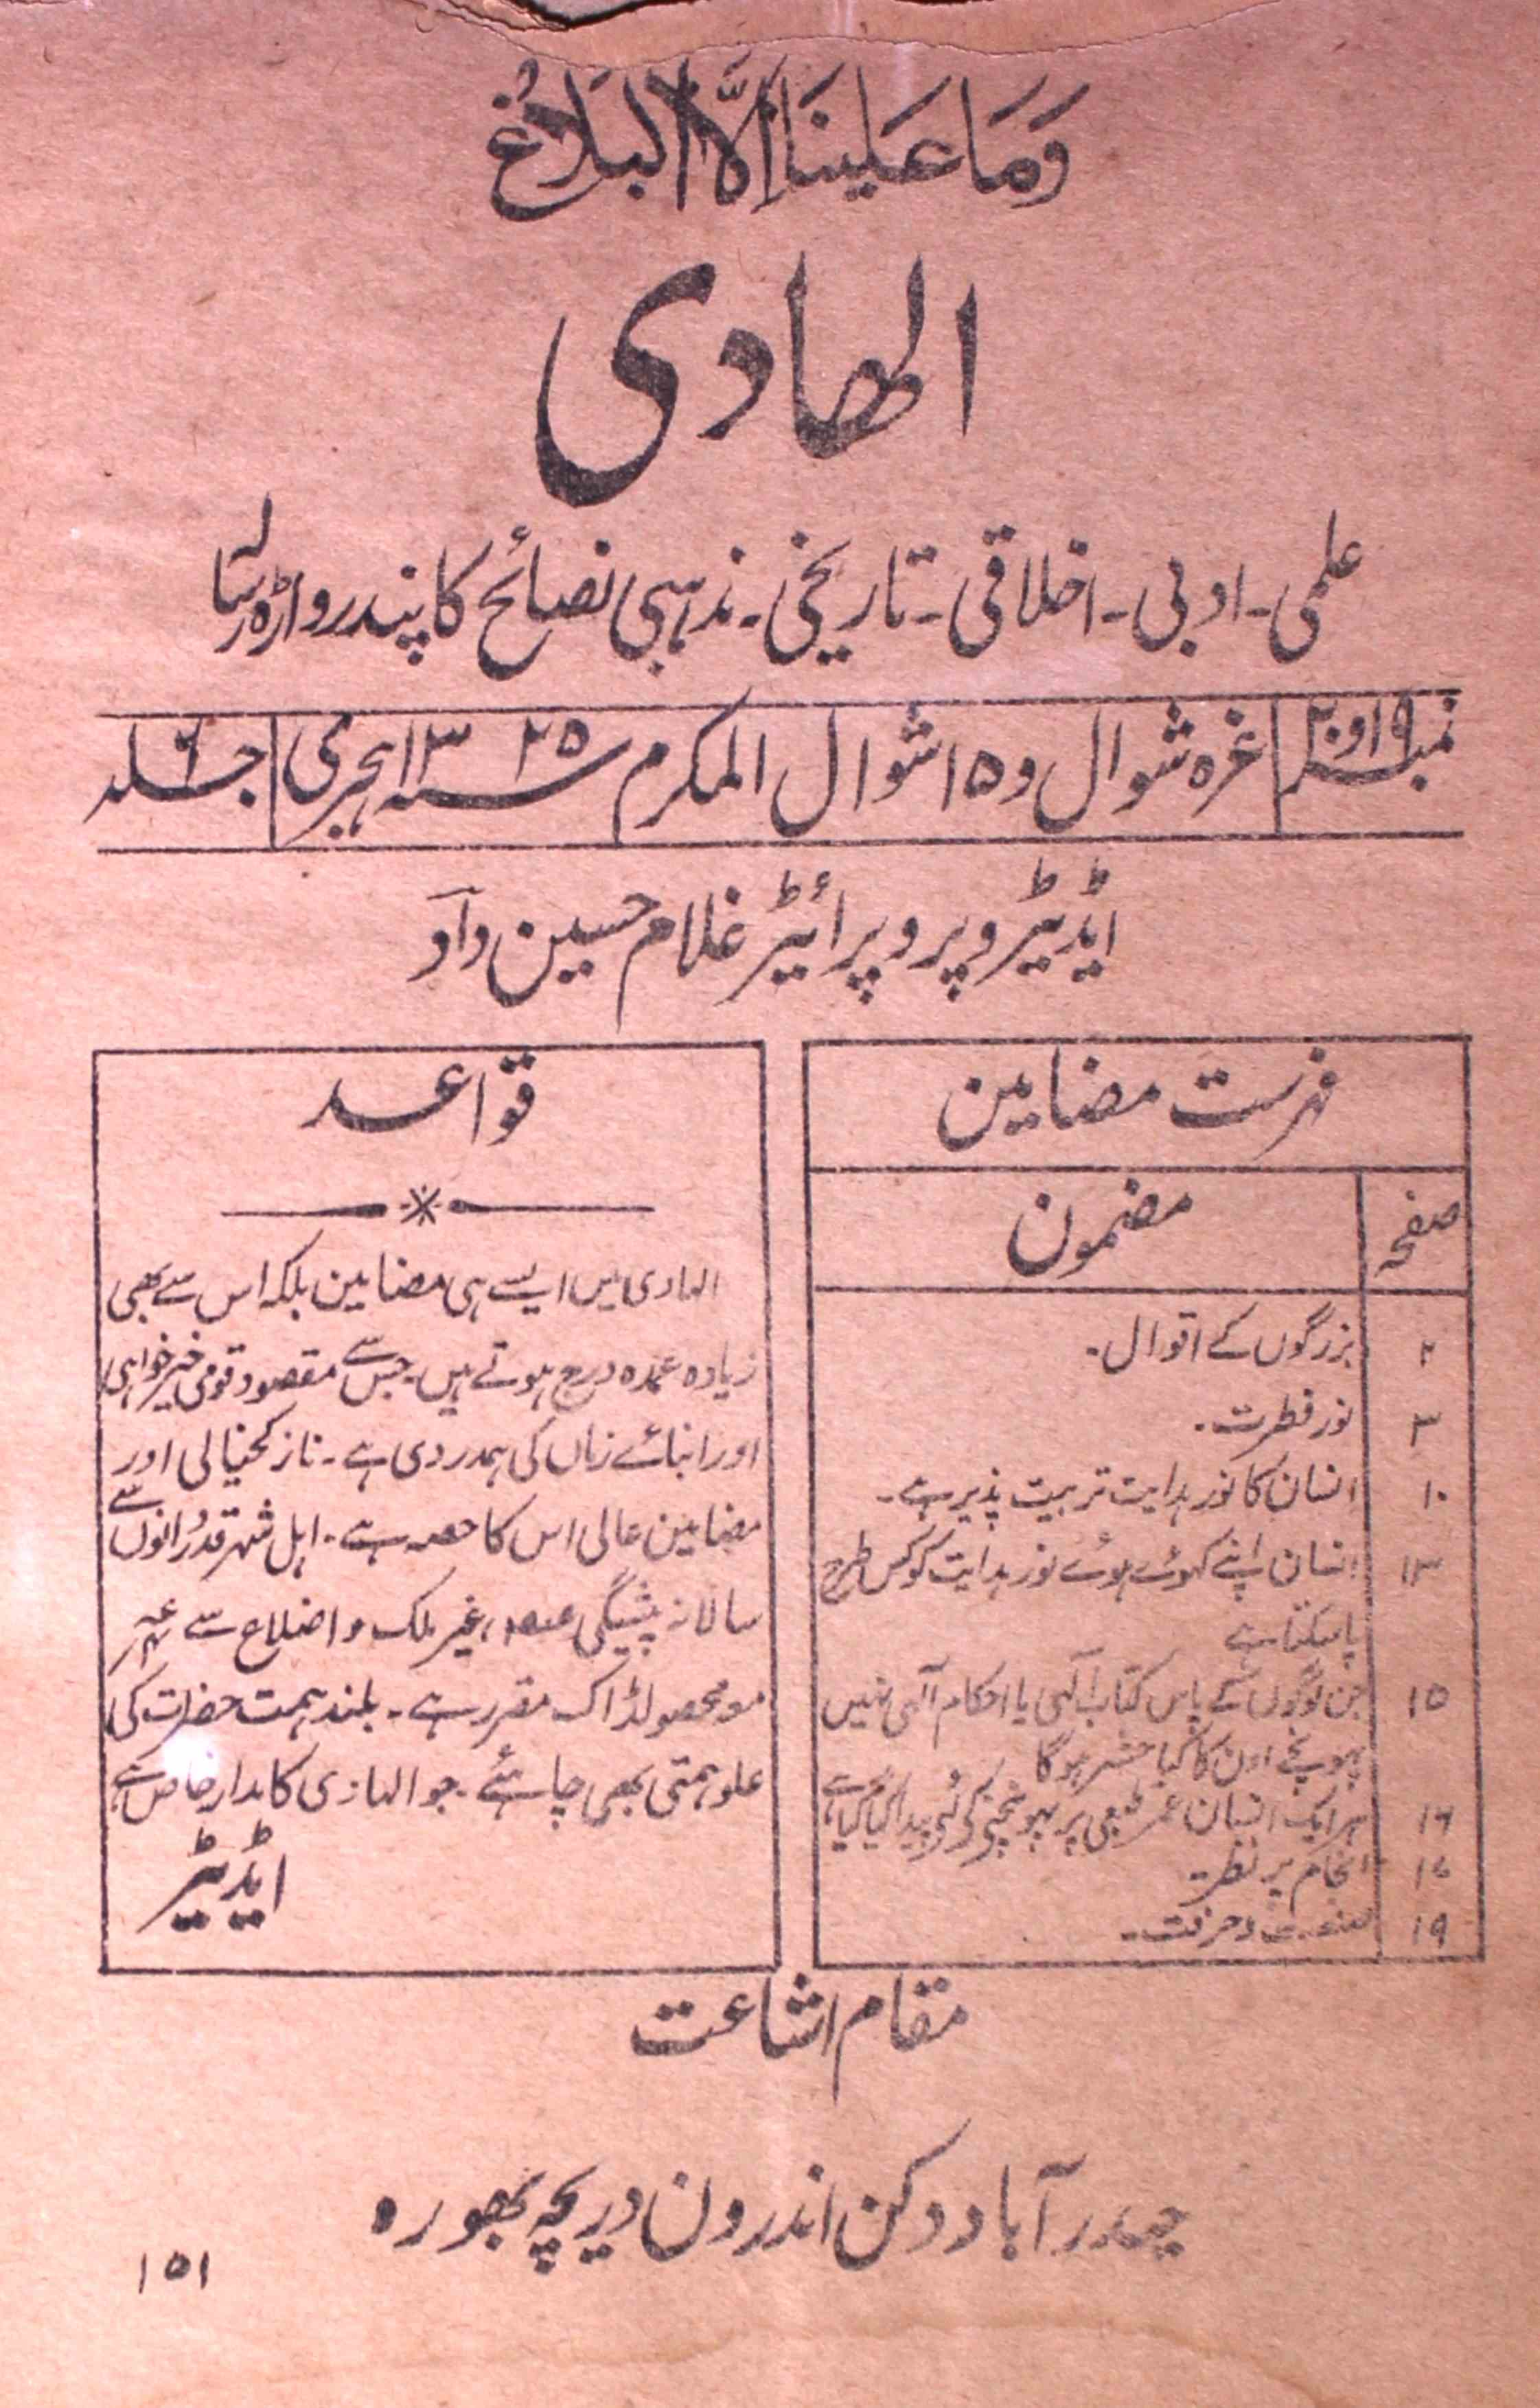 وَمَا عَلَینَا اِلَّا البَلَاغُ
الھادی
علمی ۔ ادبی ۔ اخلاقی ۔ تاریخی ۔ مذہبی نصائح کا پندرواڑہ رسالہ
نمبر ۱۹ و ۲۰ غرہ شوال و ۱۵ شوال المکرم سنہ ۱۳۲۵ ہجری جلد
ایڈیٹر و پروپرائیٹر غلام حسین داؤد
فہرست مضامین
صفحہ مضمون
۲ بزرگوں کے اقوال ۔
۳ نور فطرت ۔
۱۰ انسان کا نور ہدایت تربیت پذیر ہے ۔
۱۳ انسان اپنے کہوئے ہوئے نور ہدایت کو کس طرح
پاسکتا ہے
۱۵ جن لوگوں کے پاس کتاب آلہی یا احکام آلہی نہیں
پہونچے اون کا کیا حشر ہوگا
۱۶ ہر ایک انسان عمر طبعی پر پہونچنے کے لئے پیدا کیا گیا ہے
۱۷ انجام پر نظر
۱۹ صنعت و حرفت ۔
قواعد
الہادی میں ایسے ہی مضامین بلکہ اس سے بھی
زیادہ عمدہ درج ہوتے ہیں جس سے مقصود قومی خیر خواہی
اور ابنائے زماں کی ہمدردی ہے ۔ نازکخیالی اور
مضامین عالی اس کا حصہ ہے ۔ اہل شہر قدردانوں سے
سالانہ پیشگی ، غیر ملک و اضلاع سے
مومحصولڈاک مقرر ہے ۔ بلند ہمت حضرات کی
علو ہمتی بھی چاہئے ۔ جو الہادی کا مدار خاص ہے
ایڈیٹر
مقام اشاعت
حیدرآباد دکن اندرون دریچہ بھورہ
۱۵۱